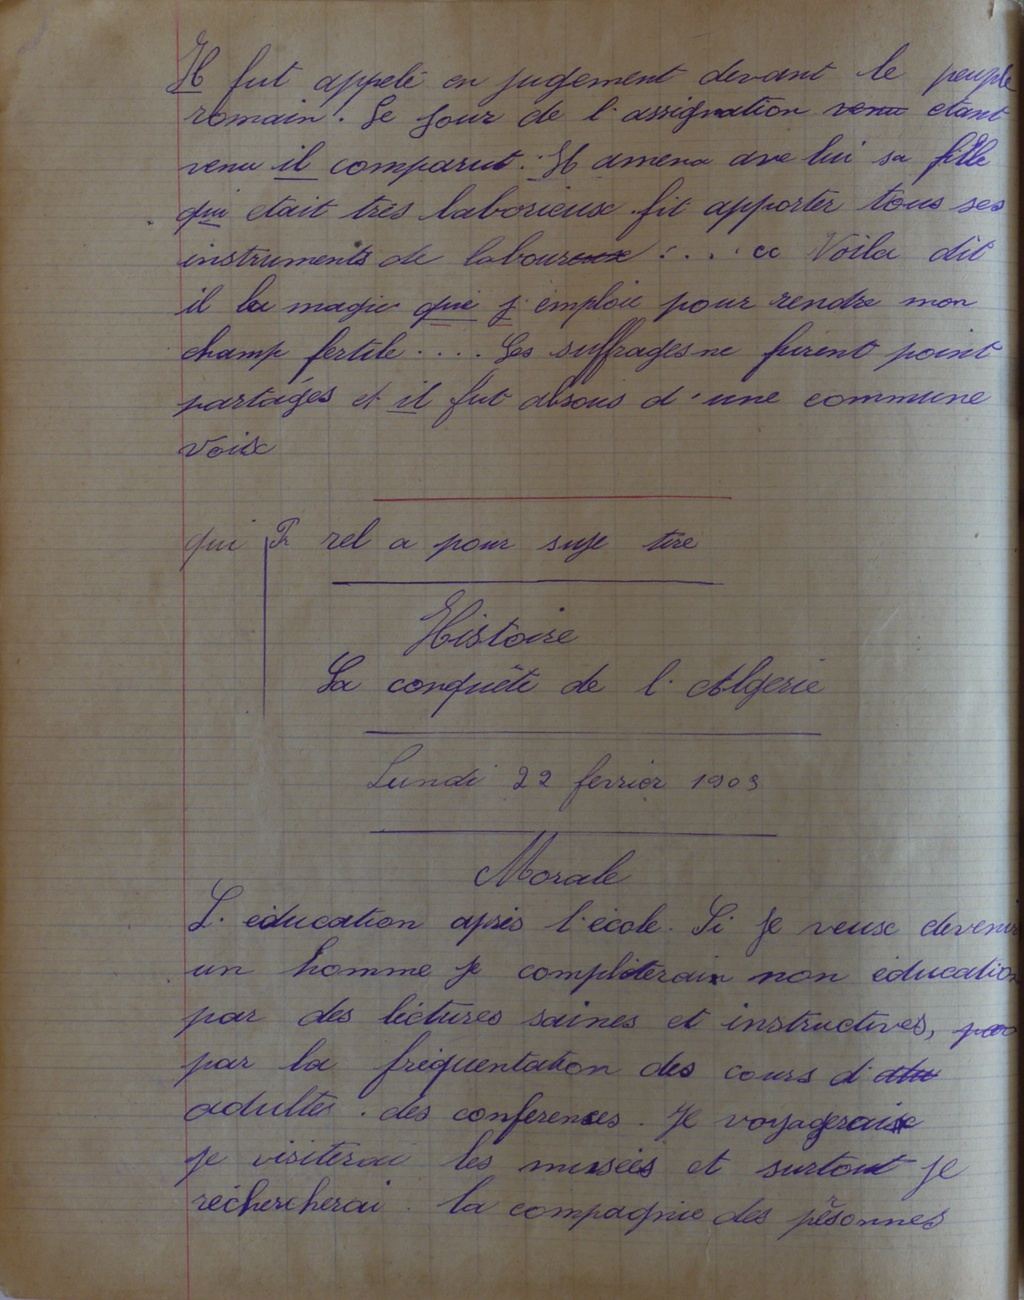 Il fut appelé en jugement devant le peuple
romain. Le jour de l'assignation venu etant
venu il comparut. Il amena ave lui sa fille
qui etait très laborieuse. fit apporter tous ses
instruments de laboureux : ... « Voila dit
il la magie que j'emploie pour rendre mon
champ fertile .... Les suffrages ne furent point
partagés et il fut absous d'une commune
voix
qui Pr rel a pour suje tire
Histoire
La conquête de l'Algerie
Lundi 22 fevrier 1903
Morale
L'éducation après l'école. Si je veux devenir
un homme je complèterai mon éducation
par des lectures saines et instructives, par
par la fréquentation des cours d'
adultes. des conferences. Je voyagerais
je visiterai les musées et surtout je
rechercherai la compagnie des pesonnes